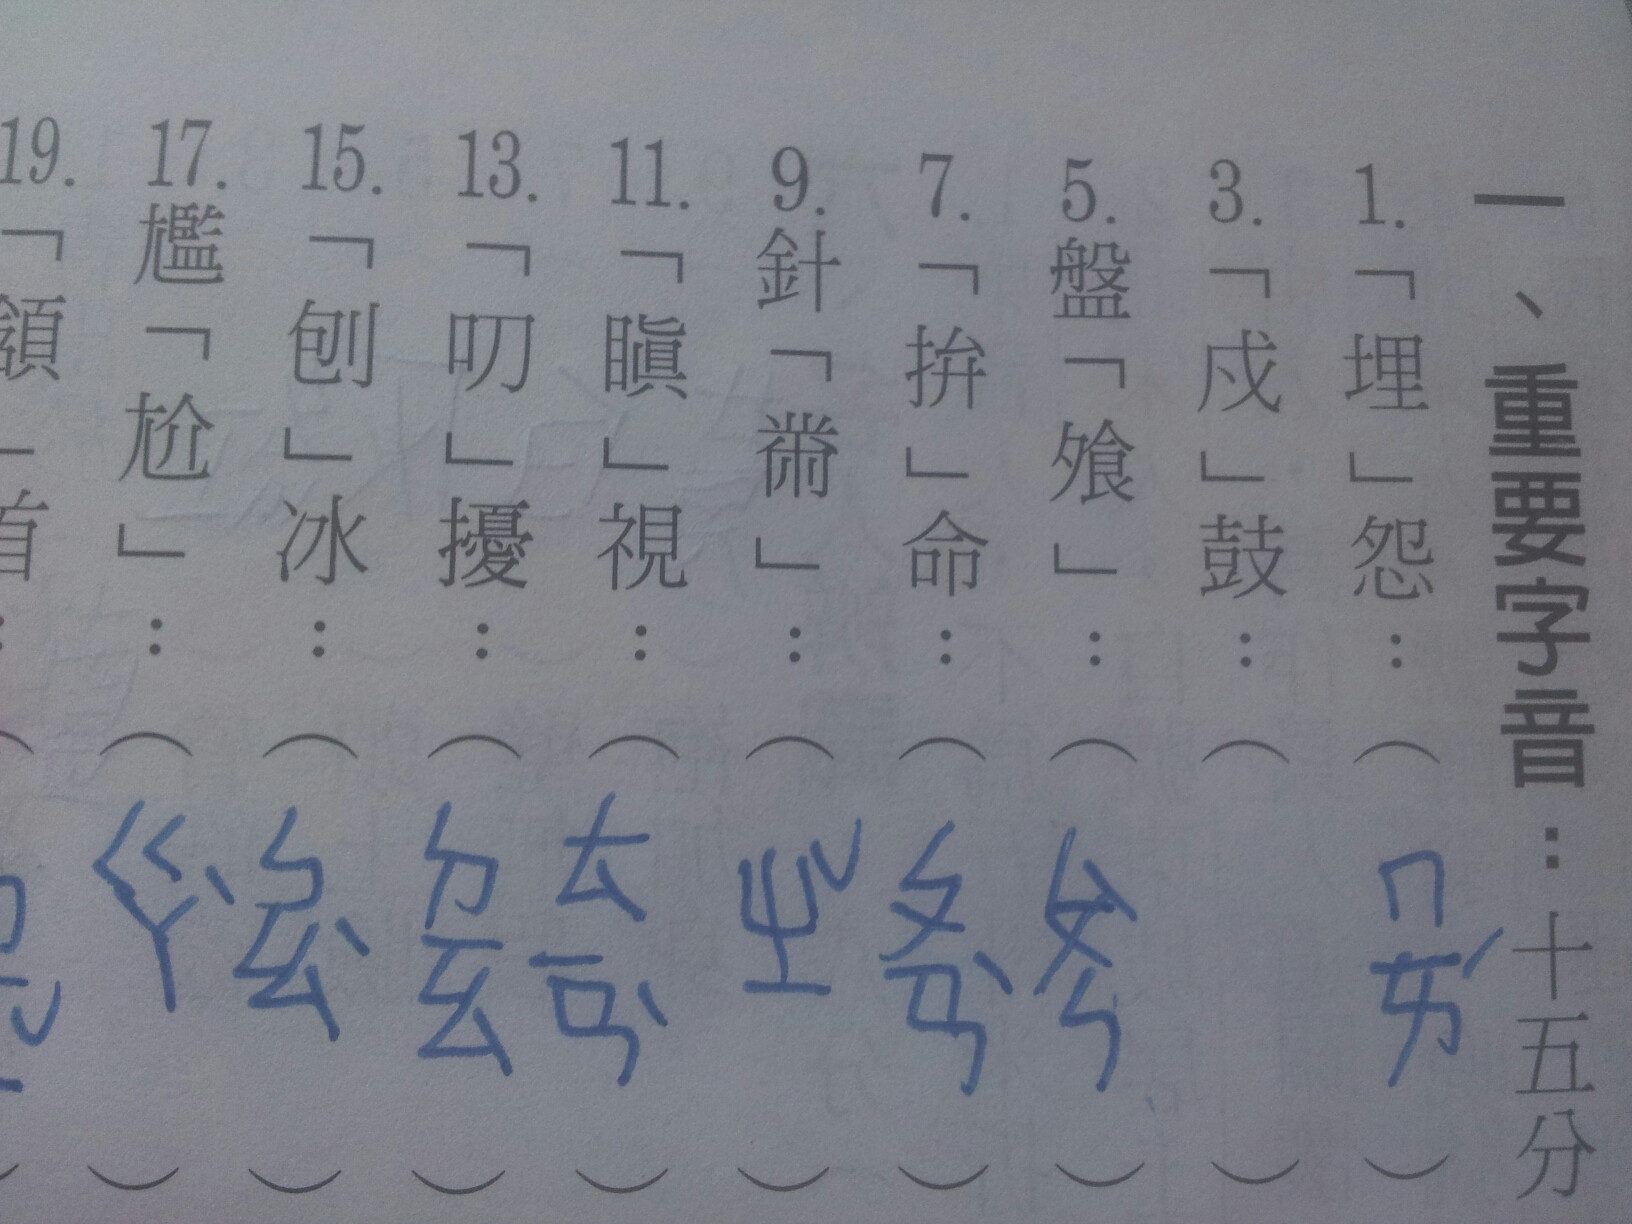 一、重要字音：十五分
1.「埋」怨：（ㄇㄞˊ）
3.「戍」鼓：（）
5.盤「飧」：（ㄙㄨㄣ）
7.「拚」命：（ㄆㄢˋ）
9.針「黹」：（ㄓˇ）
11.「瞋」視：（）
13.「叨」擾：（ㄉㄠ）
15.「刨」冰：（ㄅㄠˋ）
17.尷「尬」：（ㄍㄚˋ）
19.「頷」首：